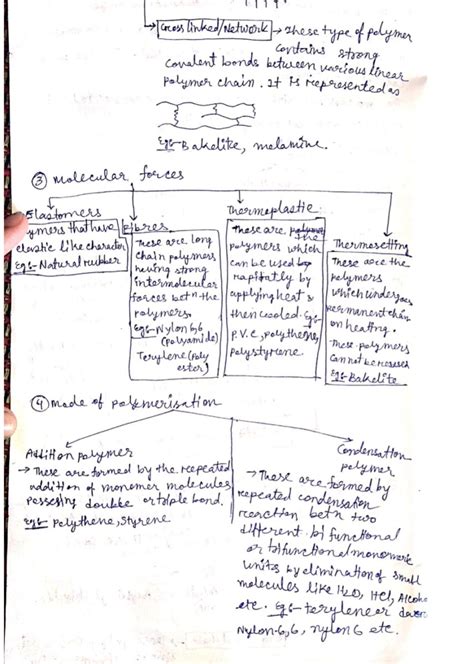 Cross linked/Network → These type of polymer
contains strong
Covalent bonds between various linear
polymer chain. It is represented as
Eg:- Bakelite, melamine.
③ molecular forces
Elastomers
ymers that have
elastic like character
Eg:- Natural rubber
fibres
These are long
chain polymers
having strong
intermolecular
forces betn the
polymers.
Eg:- Nylon 6,6
(Polyamide)
Terylene (Poly
ester)
Thermoplastic
These are the
polymers which
can be used
by
applying heat &
then cooled. Eg:-
P.V.C, polythene,
polystyrene.
Thermosetting
These are the
polymers
which undergoes
permanent chan
on heating.
These polymers
Cannot be
Eg:- Bakelite
④ mode of polymerisation
Addition polymer
→ These are formed by the repeated
addition of monomer molecules
possesing double or triple bond.
Eg:- Polythene, Styrene
Condensation
polymer
→ These are formed by
repeated condensation
reaction betn two
different bi functional
or trifunctional monomeric
units by elimination of small
molecules like H2O, HCl, Alcoho
etc. Eg:- terylene or dacr
Nylon-6,6, nylon 6 etc.